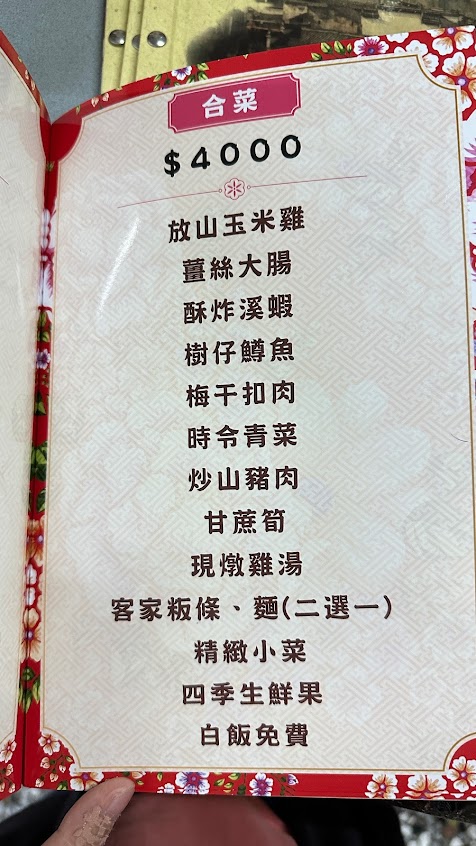 合菜
$4000
放山玉米雞
薑絲大腸
酥炸溪蝦
樹仔鱒魚
梅干扣肉
時令青菜
炒山豬肉
甘蔗筍
現燉雞湯
客家粄條、麵(二選一)
精緻小菜
四季生鮮果
白飯免費